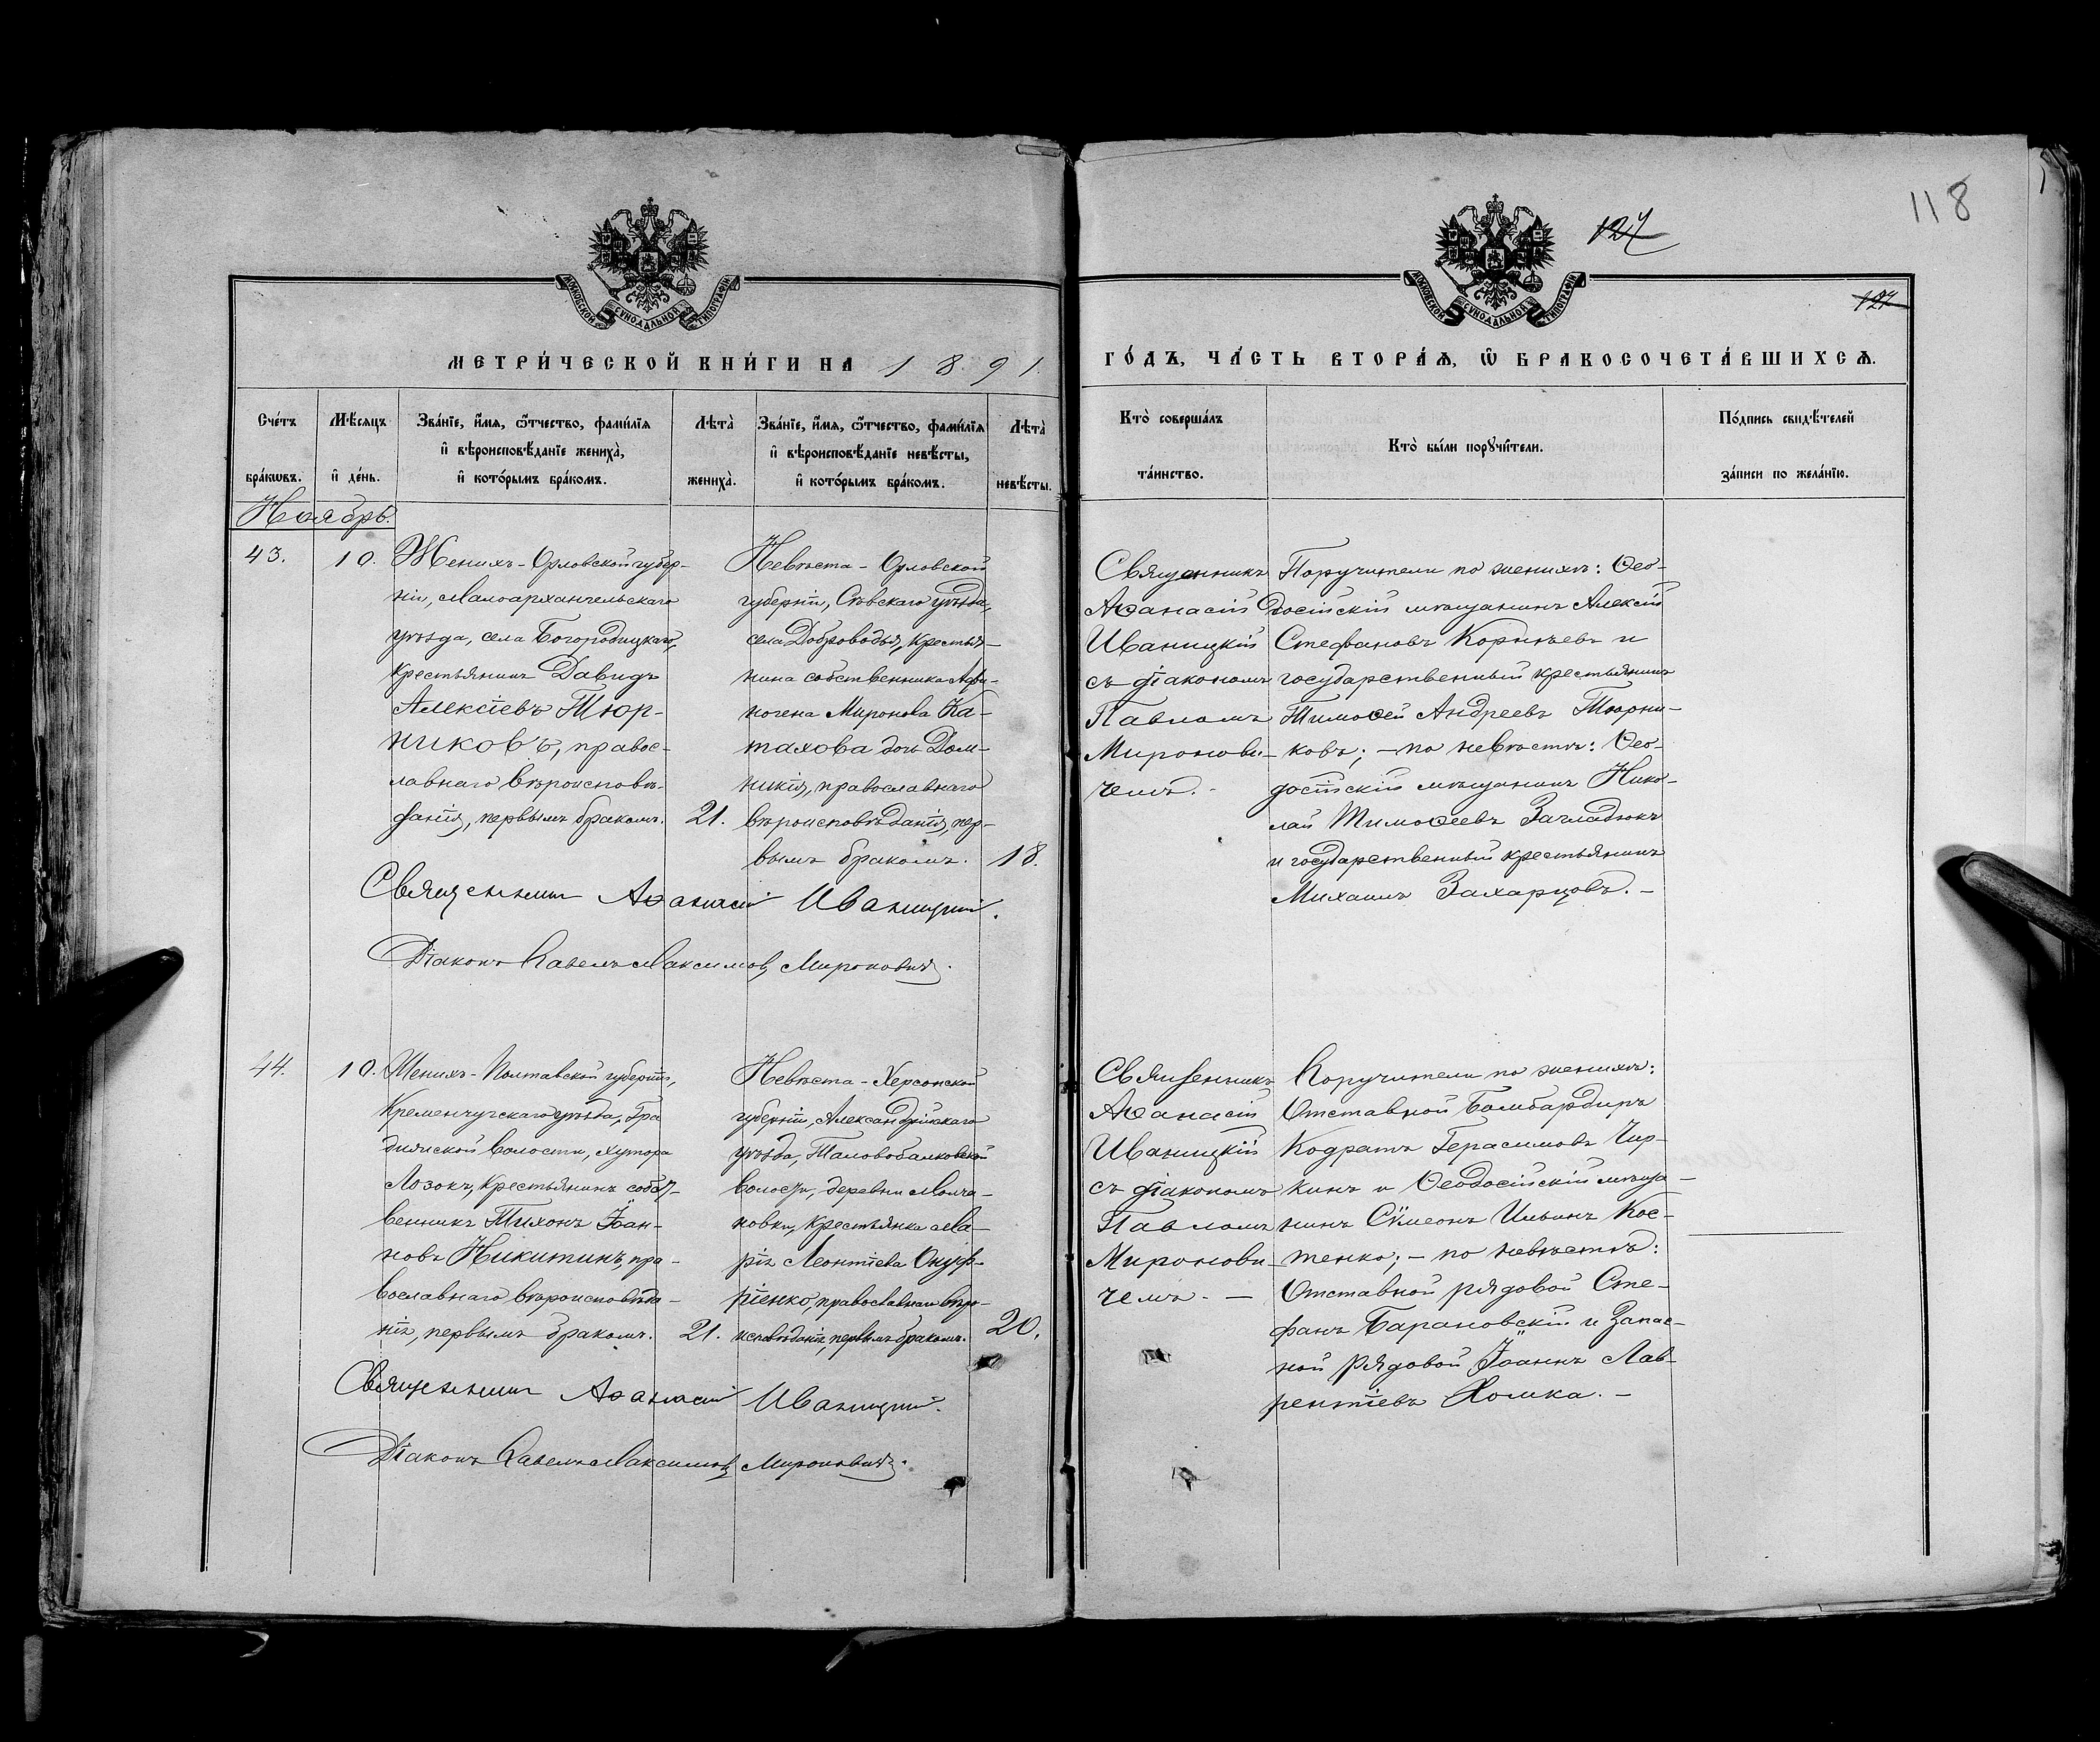 118
127
МОСКОВСКОЙ СѴНОДАЛЬНОЙ ТИПОГРАФІИ
МОСКОВСКОЙ СѴНОДАЛЬНОЙ ТИПОГРАФІИ
МЕТРИ́ЧЕСКОЙ КНИ́ГИ НА 1891.
ГО́ДЪ, ЧА́СТЬ ВТОРА́Я, Ѿ БРАКОСОЧЕТА́ВШИХСЯ.
Сче́тъ
бра́ковъ.
Мѣ́сяцъ
и де́нь.
Зва́нїе, и́мя, ѻ́тчество, фами́лїя
и вѣроисповѣ́данїе жениха̀,
и кото́рымъ бра́комъ.
Лѣта̀
жениха̀.
Зва́нїе, и́мя, ѻ́тчество, фами́лїя
и вѣроисповѣ́данїе невѣ́сты,
и кото́рымъ бра́комъ.
Лѣта̀
невѣ́сты.
Кто̀ соверша́лъ
та́инство.
Кто̀ бы́ли порꙋчи́тели.
По́дпись свидѣ́телей
за́писи по жела́нїю.
Ноябрь.
43.
10.
Женихъ - Орловской губер-
ніи, Малоархангельскаго
уѣзда, села Богородицкаго,
крестьянинъ Давидъ
Алексіевъ Тюр-
никовъ, правос-
лавнаго вѣроисповѣ-
данія, первымъ бракомъ.
21.
Невѣста - Орловской
губерніи, Сѣвскаго уѣзда,
села Доброводья, крестья-
нина собственника Афи-
ногена Миронова Ка-
тахова дочь Дом-
никія, православнаго
вѣроисповѣданія, пер-
вымъ бракомъ.
18.
Священникъ
Аѳанасій
Иваницкій
съ діакономъ
Павломъ
Миронови-
чемъ. -
Поручители по женихѣ: Ѳео-
досійскій мѣщанинъ Алексій
Стефановъ Корнѣевъ и
государственный крестьянинъ
Тимоѳей Андреевъ Тюрни-
ковъ; - по невѣстѣ: Ѳео-
досійскій мѣщанинъ Нико-
лай Тимоѳеевъ Загладюкъ
и государственный крестьянинъ
Михаилъ Захарцовъ. -
Священникъ Аѳанасій Иваницкій.
Діаконъ Павелъ Максимовъ Мироновичъ.
44.
10.
Женихъ - Полтавской губерніи,
Кременчугскаго уѣзда, Гра
дижской волости, хутора
Лозокъ, крестьянинъ собст-
венникъ Тихонъ Іоан-
новъ Никитинъ, пра-
вославнаго вѣроисповѣда-
нія, первымъ бракомъ.
21.
Невѣста - Херсонской
губерніи, Александрійскаго
уѣзда, Таловобалковской
волости, деревни Молча-
новки, крестьянка Ма-
рія Леонтіева Онуф-
ріенко, православнаго вѣро-
исповѣданія, первымъ бракомъ.
20.
Священникъ
Аѳанасій
Иваницкій
съ діакономъ
Павломъ
Миронови-
чемъ. -
Поручители по женихѣ:
Отставной Бомбардиръ
Кодратъ Герасимовъ Чир-
кинъ и Ѳеодосійскій мѣща-
нинъ Сѵмеонъ Ильинъ Кос-
тенко; - по невѣстѣ:
Отставной рядовой Сте-
фанъ Барановскій и Запас-
ной рядовой Іоаннъ Лав-
рентіевъ Хомка. -
Священникъ Аѳанасій Иваницкій.
Діаконъ Павелъ Максимовъ Мироновичъ.